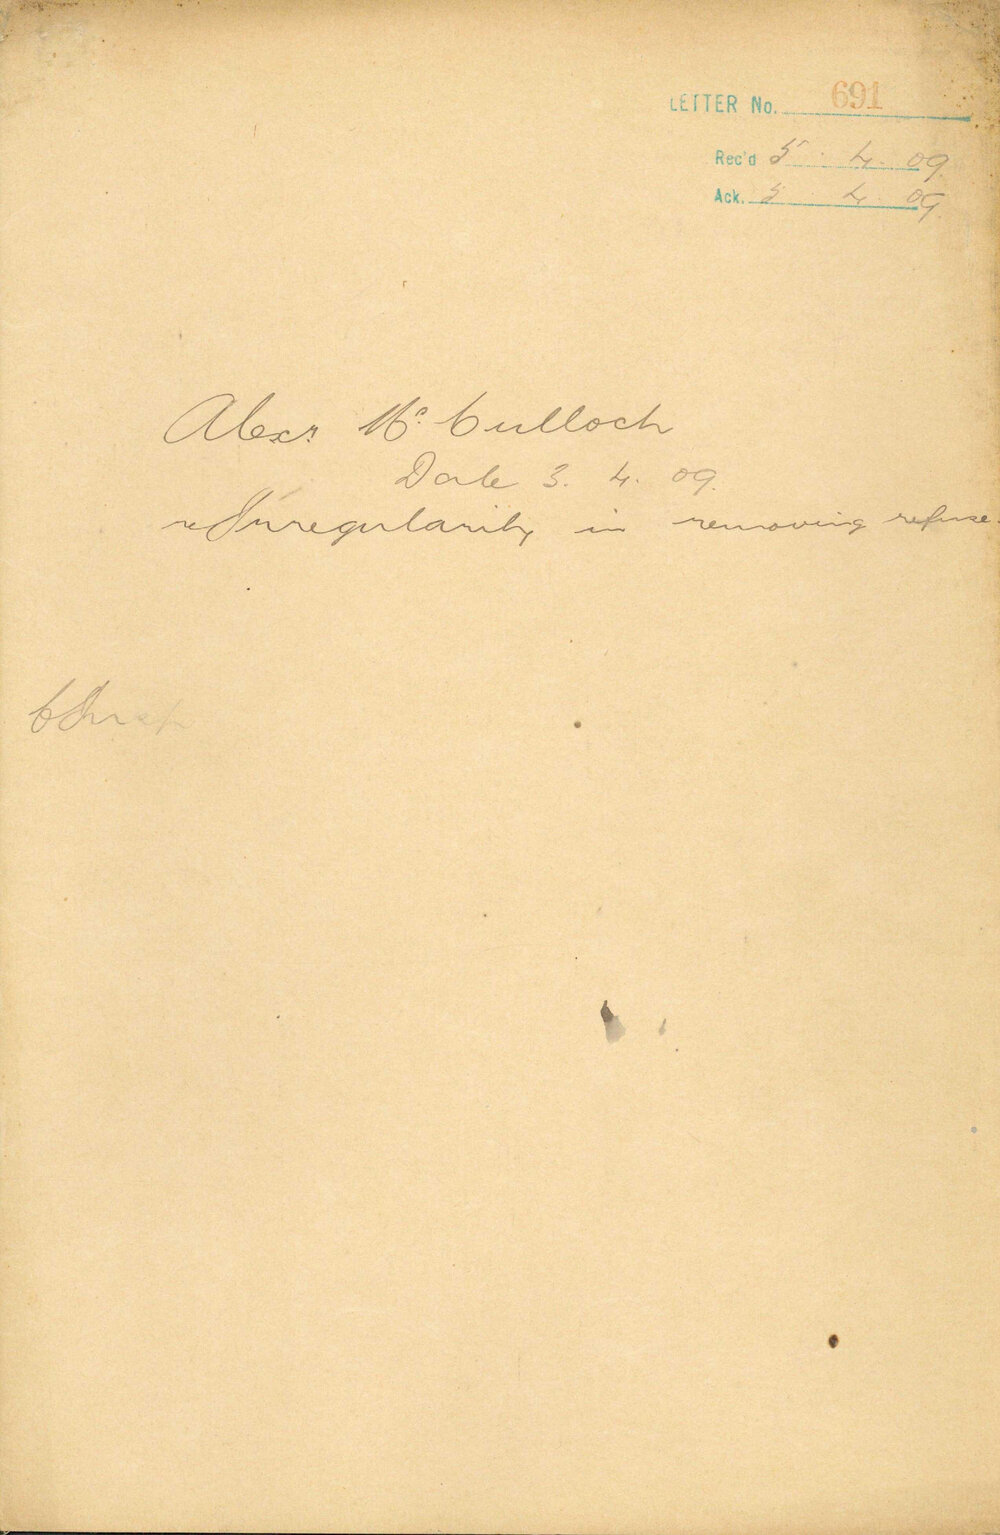 LETTER No. 691
Rec'd 5. 4. 09
Ack. 5 4 09.
Alexr. Mc. Culloch
Date 3. 4. 09.
re Irregularity in removing refuse.